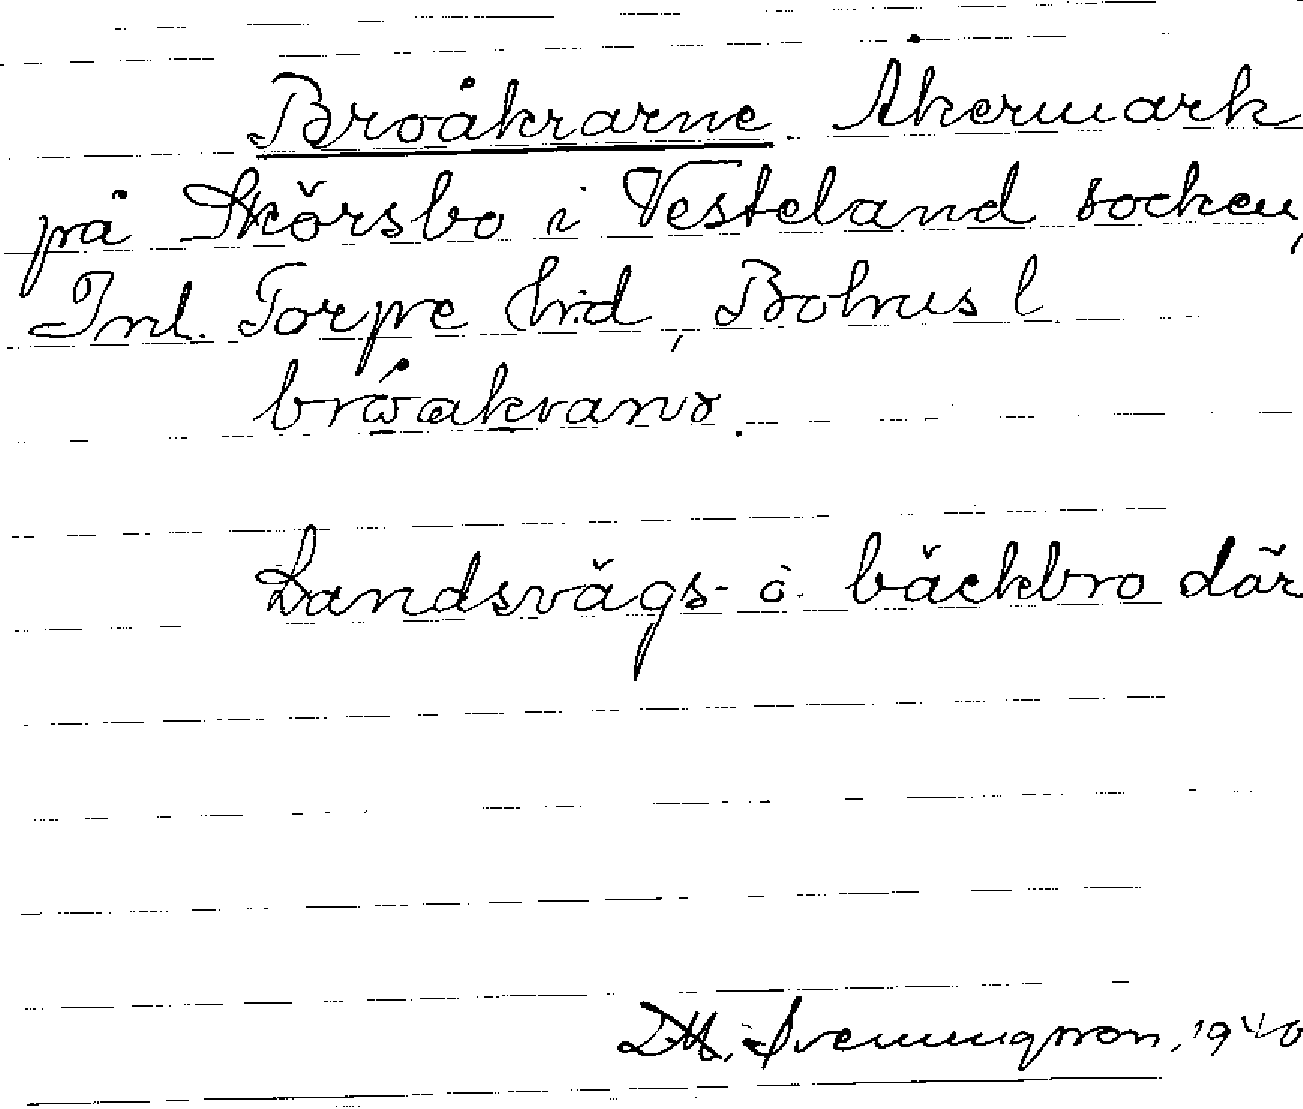 Broåkrarne. Åkermark
på Skörsbo i Vesteland socken,
Inl. Torpe hrd, Bohus l
bråakranɤ.
Landsvägs- o. bäckbro där
Svenungsson, 1940